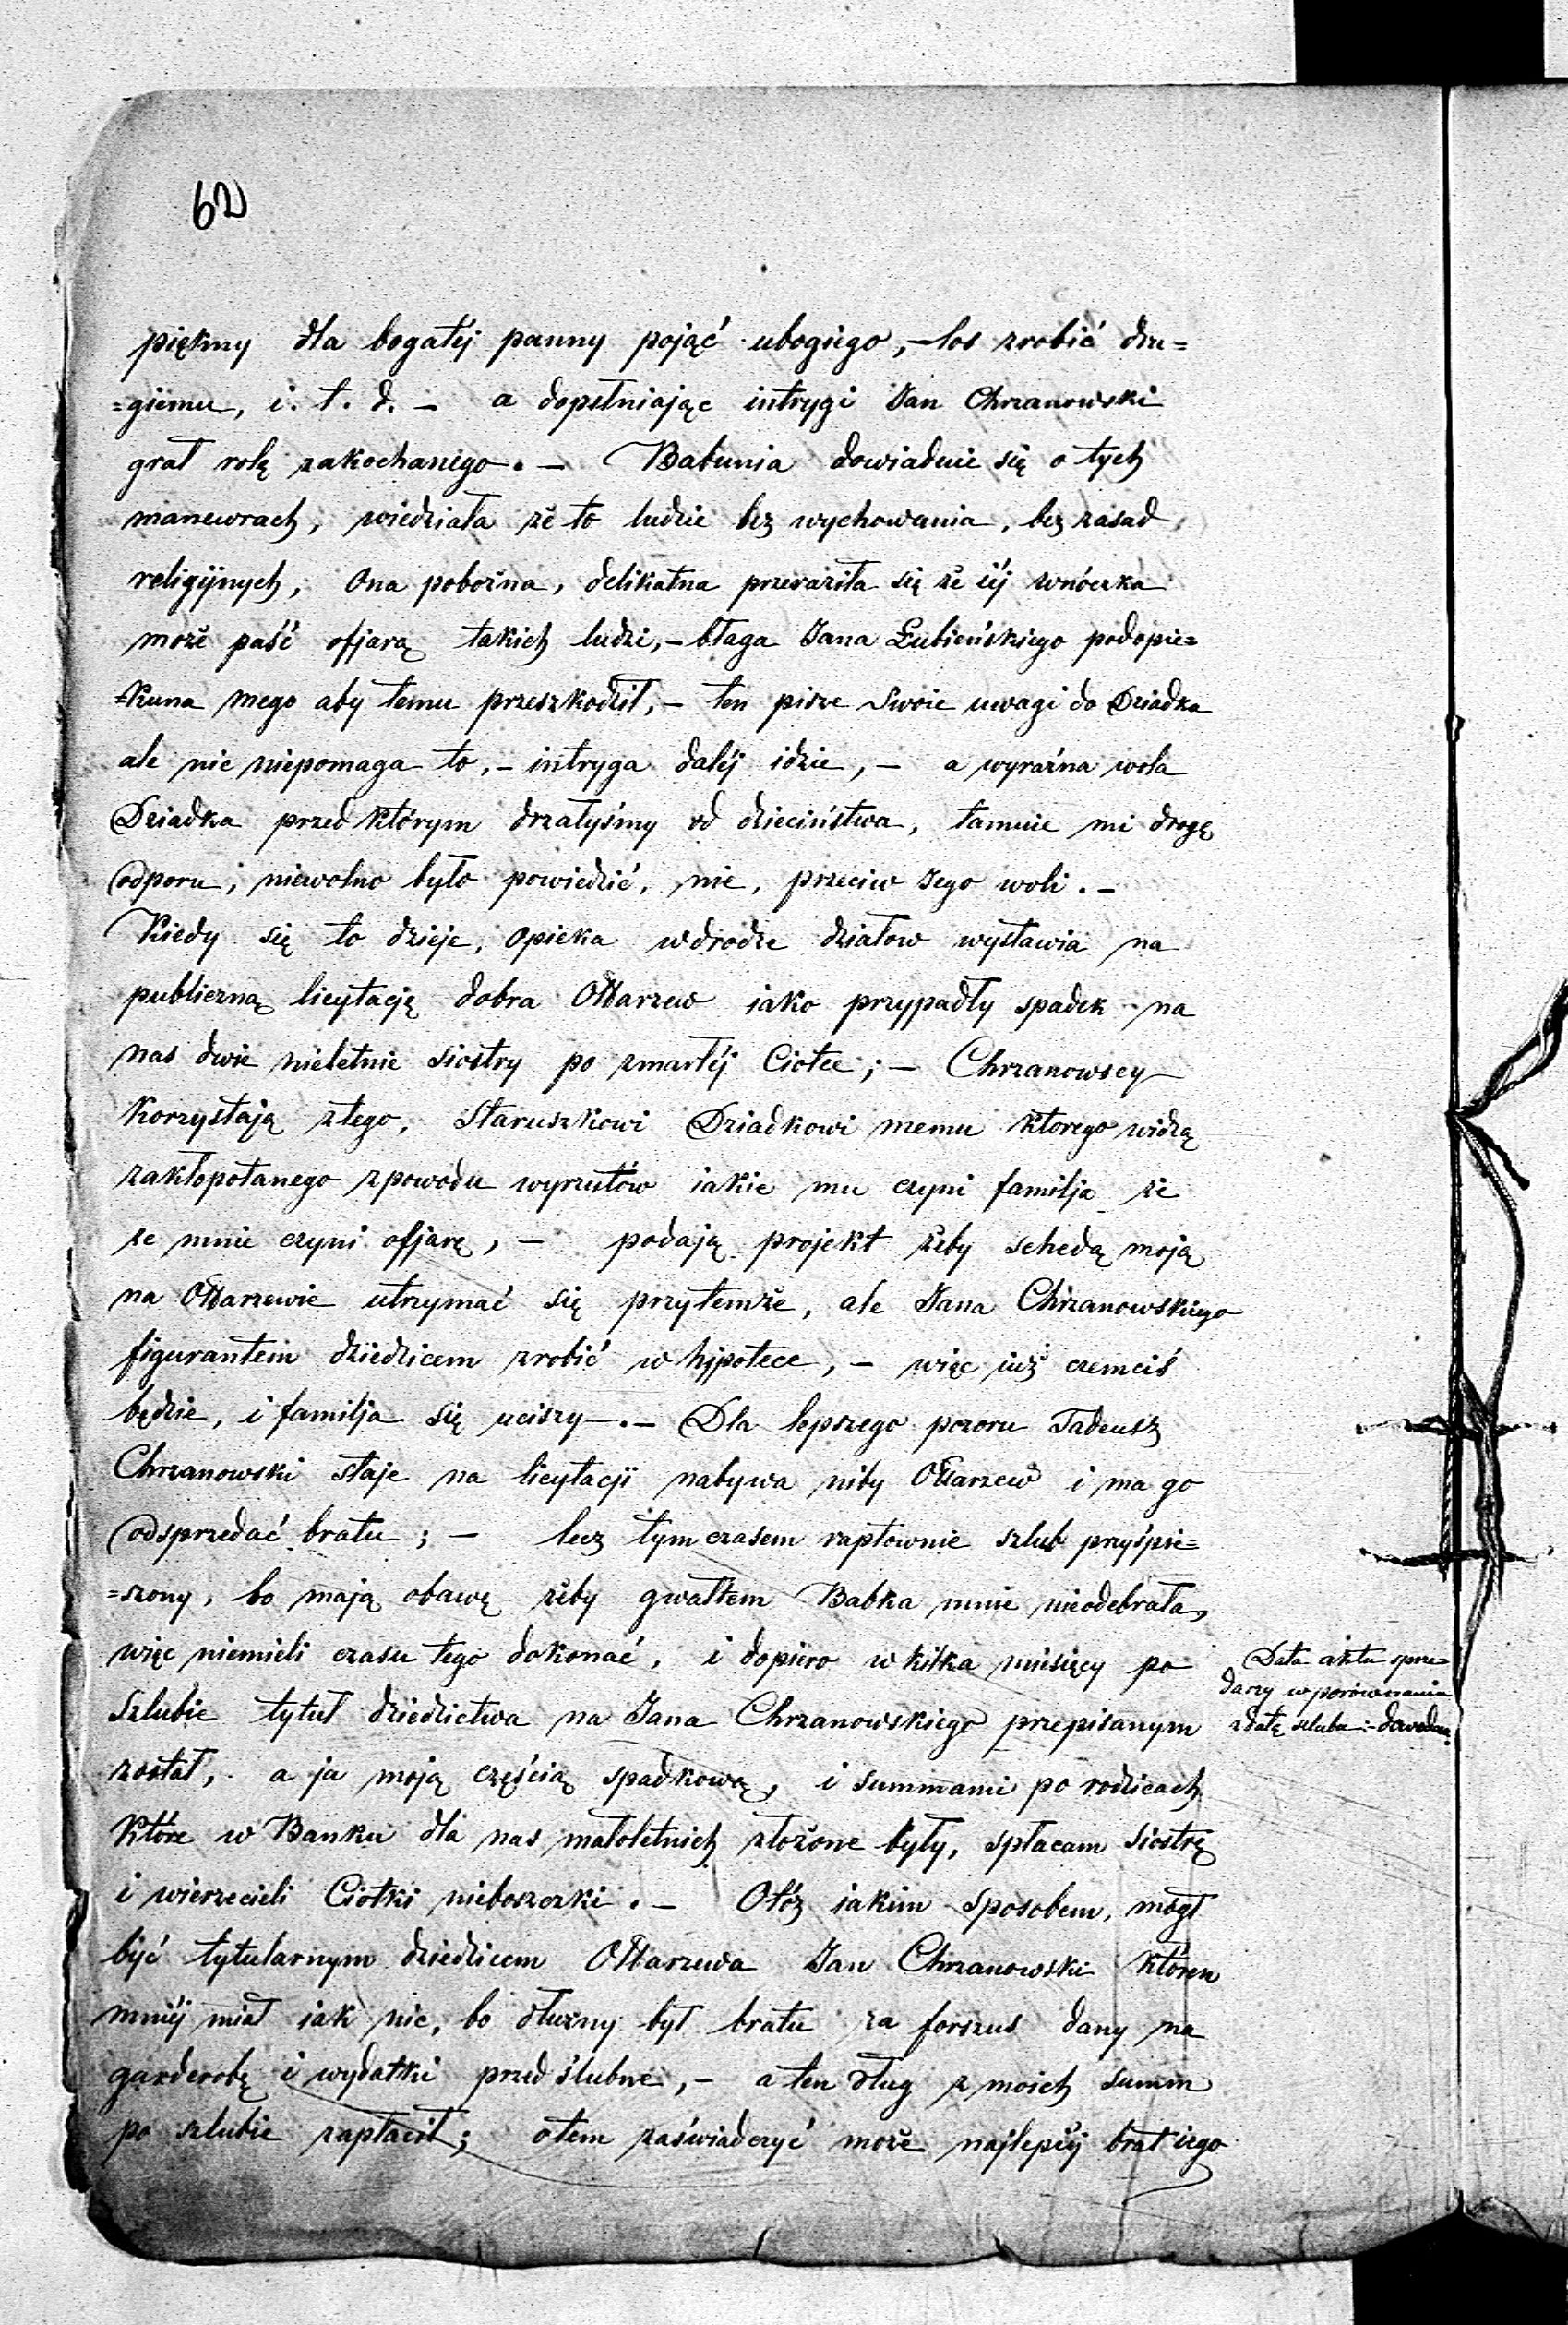 62
piękny dla bogatéj panny pojąć ubogiego,- los zrobić dru=
=giemu, i. t. d. - a dopełniając intrygi Jan Chrzanowski
grał rolę zakochanego. - Babunia dowiaduie się o tych
manewrach, wiedziała że to ludzie bez wychowania, bez zasad
religijnych, Ona pobożna, delikatna przeraziła się że iéj wnóczka
może paść ofjarą takich ludzi,- błaga Jana Łubieńskiego podopie=
=kuna mego aby temu przeszkodził,- ten pisze swoie uwagi do Dziadka
ale nic niepomaga to,- intryga daléj idzie, - a wyraźna wola
Dziadka przed którym drzałyśmy od dzieciństwa, tamuie mi drogę
odporu; niewolno było powiedzić, nie, przeciw Jego woli. -
Kiedy się to dzieje, opieka wdrodze działow wystawia na
publiczną licytacją dobra Ołtarzew iako przypadły spadek na
nas dwie nieletnie siostry po zmarłéj Ciotce; - Chrzanowscy
korzystają ztego, Staruszkowi Dziadkowi memu ktorego widzą
zakłopotanego zpowodu wyrzutów iakie mu czyni familja że
ze mnie czyni ofjarę, - podają projekt żeby schedą moją
na Ołtarzewie utrzymać się przytemże, ale Jana Chrzanowskiego
figurantem dziedzicem zrobić w hypotece, - więc iuż czemciś
będzie, i familja się uciszy. - Dla lepszego pozoru Tadeusz
Chrzanowski staje na licytacji nabywa niby Ołtarzew i ma go
odsprzedać bratu; - lecz tym czasem raptownie szlub przyśpie=
=szony, bo mają obawę żeby gwałtem Babka mnie nieodebrała,
więc niemieli czasu tego dokonać, i dopiero w kilka miesięcy po
szlubie tytuł dziedzictwa na Jana Chrzanowskiego przepisanym
został, a ja moją częścią spadkową, i summami po rodzicach
które w Banku dla nas małoletnich złożone były, spłacam siostrę
i wierzecieli Ciotki nieboszczki. - Otóż iakim sposobem, mógł
być tytularnym dziedzicem Ołtarzewa Jan Chrzanowski któren
mniéj miał iak nic, bo dłużny był bratu za forszus dany na
garderobę i wydatki przed ślubne, - a ten dług z moich summ
po szlubie zapłacił; otem zaświadczyć może najlepiéj brat iego
Data aktu sprze=
darzy w porównaniu
zdatą szlubu:-dowodem